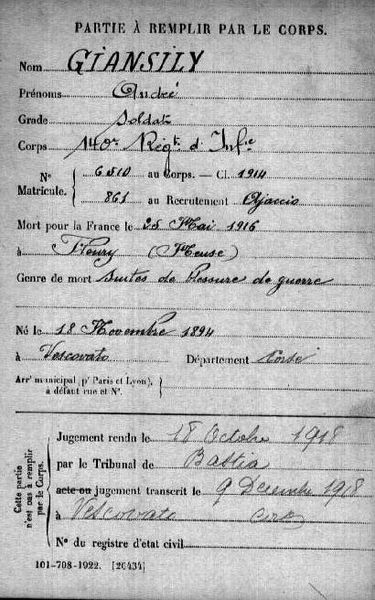 PARTIE À REMPLIR PAR LE CORPS.
Nom GIANSILY
Prénoms André
Grade Soldat
Corps 140e Régt. d'Infie
N° Matricule. 6510 au Corps. — Cl. 1914
861 au Recrutement Ajaccio
Mort pour la France le 25 Mai 1916
à Fleury (Meuse)
Genre de mort Suites de blessure de guerre
Né le 18 Novembre 1894
à Vescovato Département Corse
Arrt municipal (pr Paris et Lyon), à défaut rue et N°.
Cette partie n'est pas à remplir par le Corps.
Jugement rendu le 18 Octobre 1918
par le Tribunal de Bastia
acte ou jugement transcrit le 9 Décembre 1918
à Vescovato Corse
N° du registre d'état civil
101-708-1922. [26434]